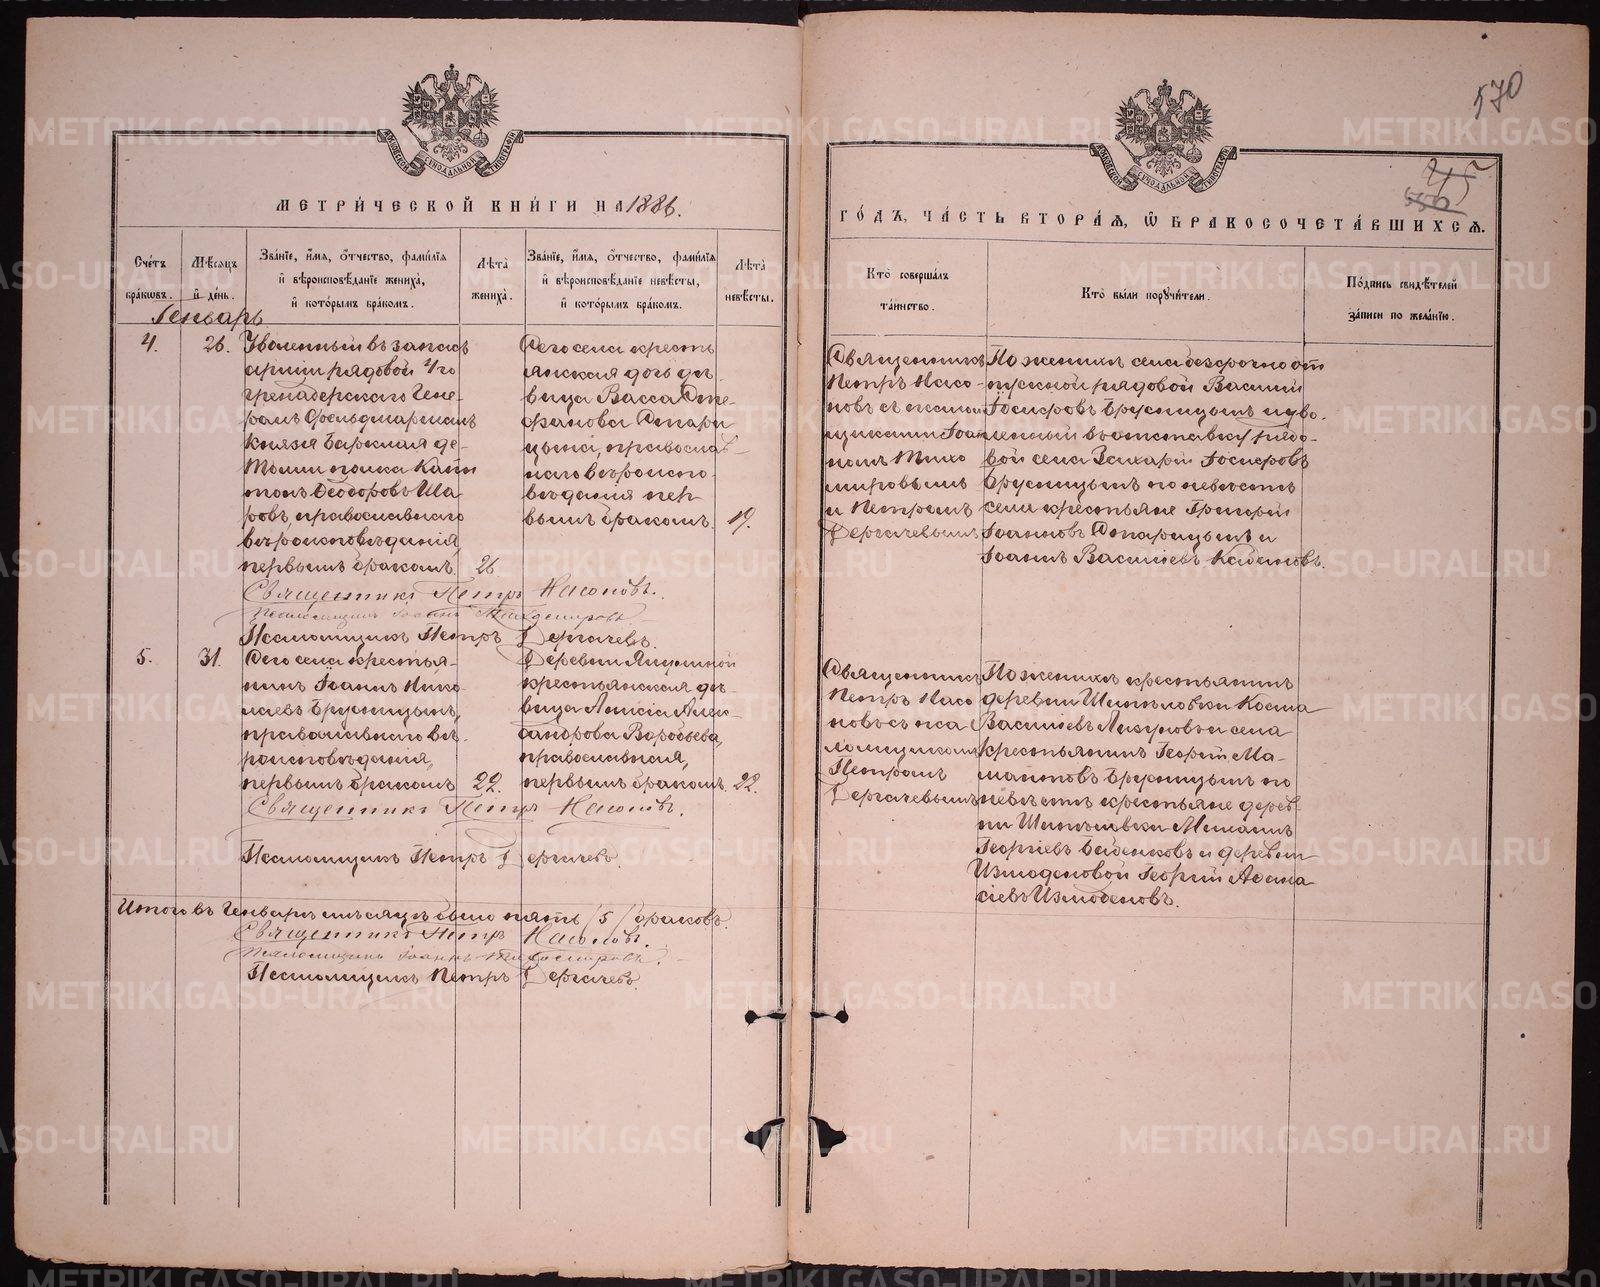 МЕТРИ́ЧЕСКОЙ КНИ́ГИ НА 1886.
Сче́тъ бра́кѡвъ.
Мѣ́сѧцъ и҆ де́нь.
Зва́нїе, и҆́мѧ, ѻ҆́тчество, фами́лїѧ и҆ вѣроисповѣ́данїе жениха̀, и҆ кото́рымъ бра́комъ.
Лѣ́та жениха̀.
Зва́нїе, и҆́мѧ, ѻ҆́тчество, фами́лїѧ и҆ вѣроисповѣ́данїе невѣ́сты, и҆ кото́рымъ бра́комъ.
Лѣ́та невѣ́сты.
Генварь
4.
26.
Уволенный въ запасъ
арміи рядовой 4го
гренадерскаго Гене-
ралъ Фельдмаршала
Князя Барклая де-
Толли полка
Ѳеодоровъ Ша-
ровъ, православнаго
вѣроисповѣданія,
первымъ бракомъ
26
Сего села кресть
янская дочь дѣ-
вица Васса Сте-
фанова Стари
цына, православ-
наго вѣроиспо-
вѣданія пер-
вымъ бракомъ
19.
Священникъ Петръ Насоновъ.
Псаломщикъ Іоаннъ Тихомировъ
Псаломщикъ Петръ Дергачевъ.
5.
31.
Сего села крестья-
нинъ Іоаннъ Нико-
лаевъ Брусницынъ,
православнаго вѣ-
роисповѣданія,
первымъ бракомъ
22.
Деревни
крестьянская дѣ-
вица Анисія Алек-
сандрова Воробьева,
православная,
первымъ бракомъ
22.
Священникъ Петръ Насоновъ.
Псаломщикъ Петръ Дергачевъ.
Итого въ Генварѣ мѣсяцѣ было пять /5/ браковъ.
Священникъ Петръ Насоновъ.
Псаломщикъ Іоаннъ Тихомировъ.
Псаломщикъ Петръ Дергачевъ.
570
45
556
ГО́ДЪ, ЧА́СТЬ ВТОРА́Ѧ, Ѡ҆ БРАКОСОЧЕТА́ВШИХСѦ.
Кто̀ соверша́лъ та́инство.
Кто̀ бы́ли поручи́тели.
По́дпись свидѣ́телей за́писи по жела́нїю.
Священникъ
Петръ Насо-
новъ съ псалом
щиками Іоан
номъ Тихо
мировымъ
и Петромъ
Дергачевымъ
По женихѣ села безсрочно от
пускной рядовой Василій
Іосифовъ Брусницынъ и уво-
ленный въ отставку рядо-
вой села Захарій Іосифовъ
Брусницынъ по невѣстѣ
села крестьяне Григорій
Іоанновъ Старицынъ и
Іоаннъ Васильевъ
Священникъ
Петръ Насо
новъ съ пса
ломщикомъ
Петромъ
Дергачевымъ
По женихѣ крестьянинъ
деревни Шипѣловки Косма
Васильевъ и села
крестьянинъ Георгій Ма-
Брусницынъ по
невѣстѣ крестьяне дерев-
ни Шипѣловки
Георгіевъ и деревни
Измоденовой Георгій Аѳана
сіевъ Измоденовъ.